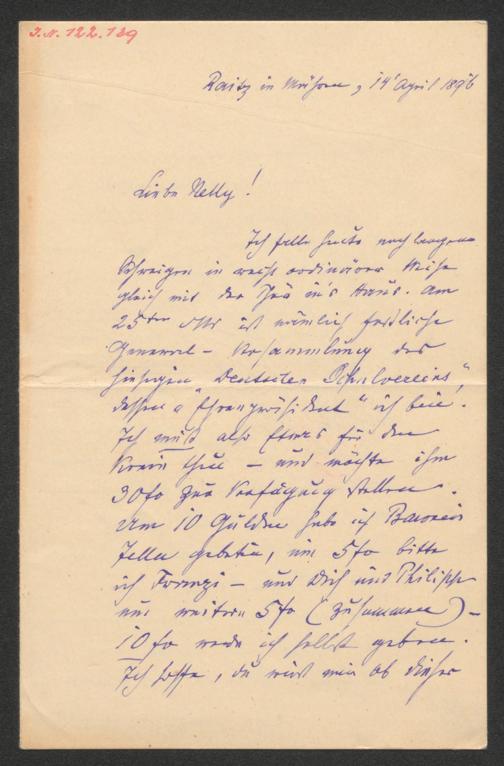 J.N. 122.139
Raitz in Mähren, 14 April 1896
Liebe Nelly!
Ich falle heute nach langem
Schweigen in recht ordinärer Weise
gleich mit der Thür in's Haus. Am
25ten ist nämlich festliche
General-Versammlung des
hiesigen „Deutschen Schulvereins",
dessen „Ehrenpräsident" ich bin.
Ich muß also etwas für den
Verein thun – und möchte ihm
30 fo zur Verfügung stellen.
Um 10 Gulden habe ich Baronin
gebeten, um 5 fo bitte
ich Franzi – und Dich und Philipp
um weitere 5 fo (zusammen) –
10 fo werde ich selbst geben.
Ich hoffe, du wirst mir ob dieser